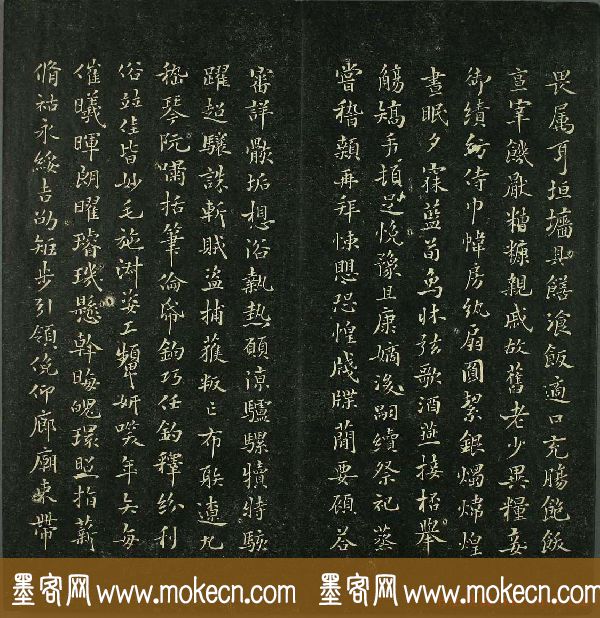 畏属耳垣墻具饍飡飯適口充腸飽飫
亨宰饑猒糟糠親戚故舊老少異糧妾
御績紡侍巾帷房紈扇圓絜銀燭煒煌
晝眠夕寐藍笋象牀弦歌酒讌接杯舉
觴矯手頓足悅豫且康嫡後嗣續祭祀蒸
嘗稽顙再拜悚懼恐惶牋牒簡要顧答
審詳骸垢想浴執熱願涼驢騾犢特駭
躍超驤誅斬賊盗捕獲叛亡布射遼丸
嵇琴阮嘯恬筆倫紙鈞巧任釣釋紛利
俗並佳皆妙毛施淑姿工顰妍笑年矢每
催曦暉朗曜璿璣懸斡晦魄環照指薪
脩祜永綏吉劭矩步引領俛仰廊廟束帶
墨客网 www.mokecn.com 墨客网 www.mokecn.com